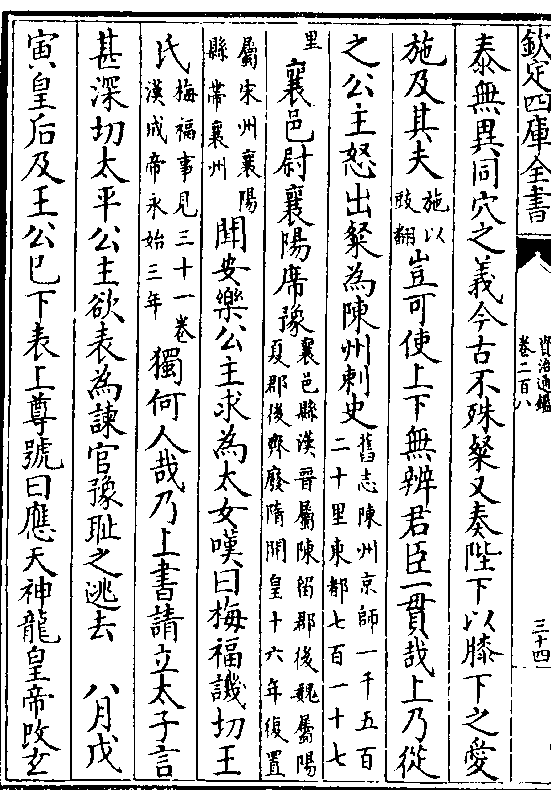 欽定四庫全書
資治通鑑
卷二百八
三十四
泰無異同穴之義今古不殊粲又奏陛下以膝下之愛
施及其夫施以豉翻豈可使上下無辨君臣一貫哉上乃從
之公主怒出粲為陳州刺史舊志陳州京師一千五百二十里東都七百一十七
里襄邑尉襄陽席豫襄邑縣漢晉屬陳留郡後魏屬陽夏郡後齊廢隋開皇十六年復置
屬宋州襄陽縣帶襄州聞安樂公主求為太女嘆曰梅福譏切王
氏梅福事見三十一卷漢成帝永始三年獨何人哉乃上書請立太子言
甚深切太平公主欲表為諫官豫耻之逃去 八月戊
寅皇后及王公已下表上尊號曰應天神龍皇帝改玄